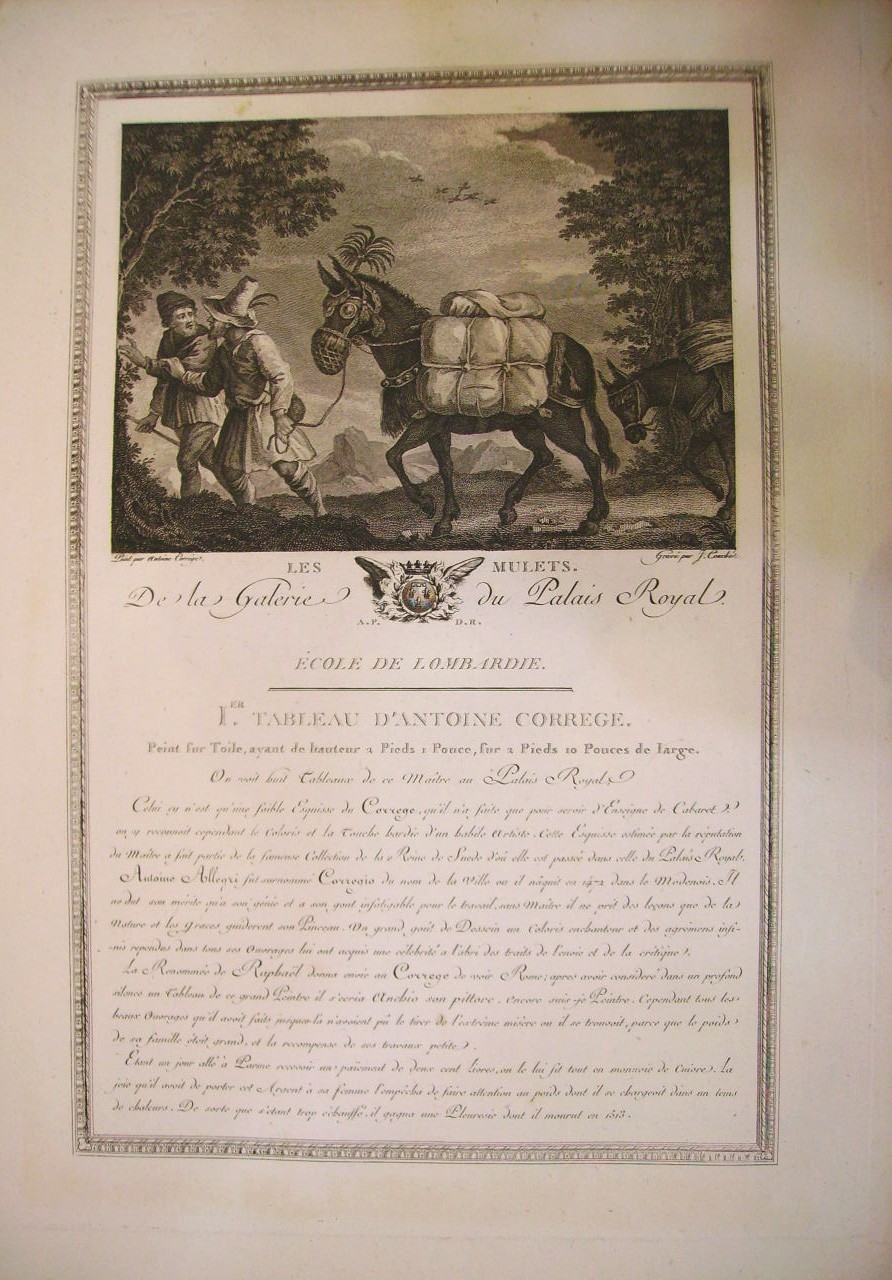 Peint par Antoine Corrège.
Gravé par J. Couché
LES MULETS.
De la Galerie du Palais Royal.
A.P. D.R.
ÉCOLE DE LOMBARDIE.
I.ER TABLEAU D'ANTOINE CORREGE.
Peint sur Toile, ayant de hauteur 2 Pieds 1 Pouce, sur 2 Pieds 10 Pouces de large.
On voit huit Tableaux de ce Maître au Palais Royal.
Celui cy n'est qu'une foible Esquisse du Correge, qu'il n'a faite que pour servir d'Enseigne de Cabaret,
on y reconnoit cependant le Coloris et la Touche hardie d'un habile Artiste. Cette Esquisse estimée par la réputation
du Maître a fait partie de la fameuse Collection de la Reine de Suede d'où elle est passée dans celle du Palais Royal.
Antoine Allegri fut surnommé Corregio du nom de la Ville ou il nâquit en dans le Modenois. Il
ne dut son mérite qu'a son génie et a son gout infatigable pour le travail, sans Maître il ne prit des leçons que de la
Nature et les Graces guiderent son Pinceau. Un grand goût de Dessein un Coloris enchanteur et des agrémens infi-
-nis repandus dans tous ses Ouvrages lui ont acquis une célébrité a l'abri des traits de l'envie et de la critique.
La Renommée de Raphaël donna envie au Correge de voir Rome; apres avoir consideré dans un profond
silence un Tableau de ce grand Peintre il s'ecria Anchio son pittore. encore suis-je Peintre. Cependant tous les
beaux Ouvrages qu'il avoit faits jusques-la n'avoient pû le tirer de l'extrême misere ou il se trouvoit, parce que le poids
de sa famille étoit grand, et la recompense de ses travaux petite.
Etant un jour allé à Parme recevoir un paiement de deux cent livres, on le lui fit tout en monnoie de Cuivre. La
joie qu'il avoit de porter cet Argent à sa femme l'empêcha de faire attention au poids dont il se chargeoit dans un tems
de chaleurs. De sorte que s'étant trop échauffé, il gagna une Pleuresie dont il mourut en 1513.